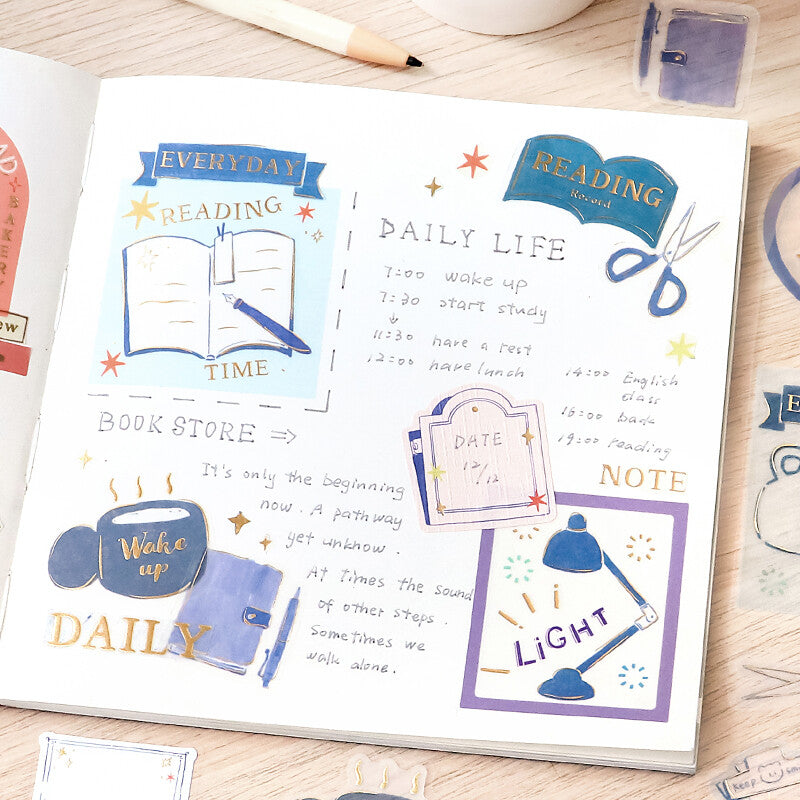 EVERYDAY
READING
TIME
READING
Record
DAILY LIFE
7:00 wake up
7:30 start study
11:30 have a rest
12:00 have lunch
14:00 English
class
16:00 back
19:00 reading
BOOK STORE ⇒
It's only the beginning
now. A pathway
yet unknow.
At times the sound
of other steps.
Sometimes we
walk alone.
DATE
12/12
NOTE
LiGHT
Wake
up
DAILY
BAKERY
Keep